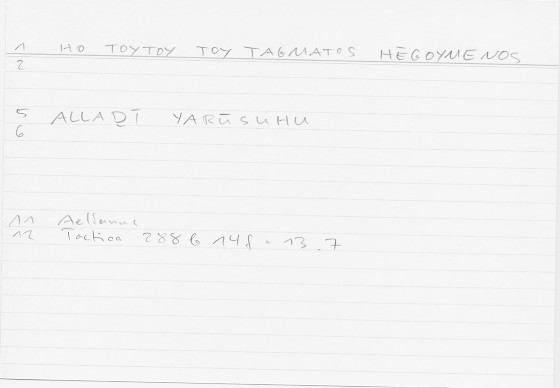 1 HO TOYTOY TOY TAGMATOS HĒGOYMENOS
2
5 ALLAḎĪ YARŪSUHU
6
11 Aelianus
12 Tactica 288 G 14f = 13.7